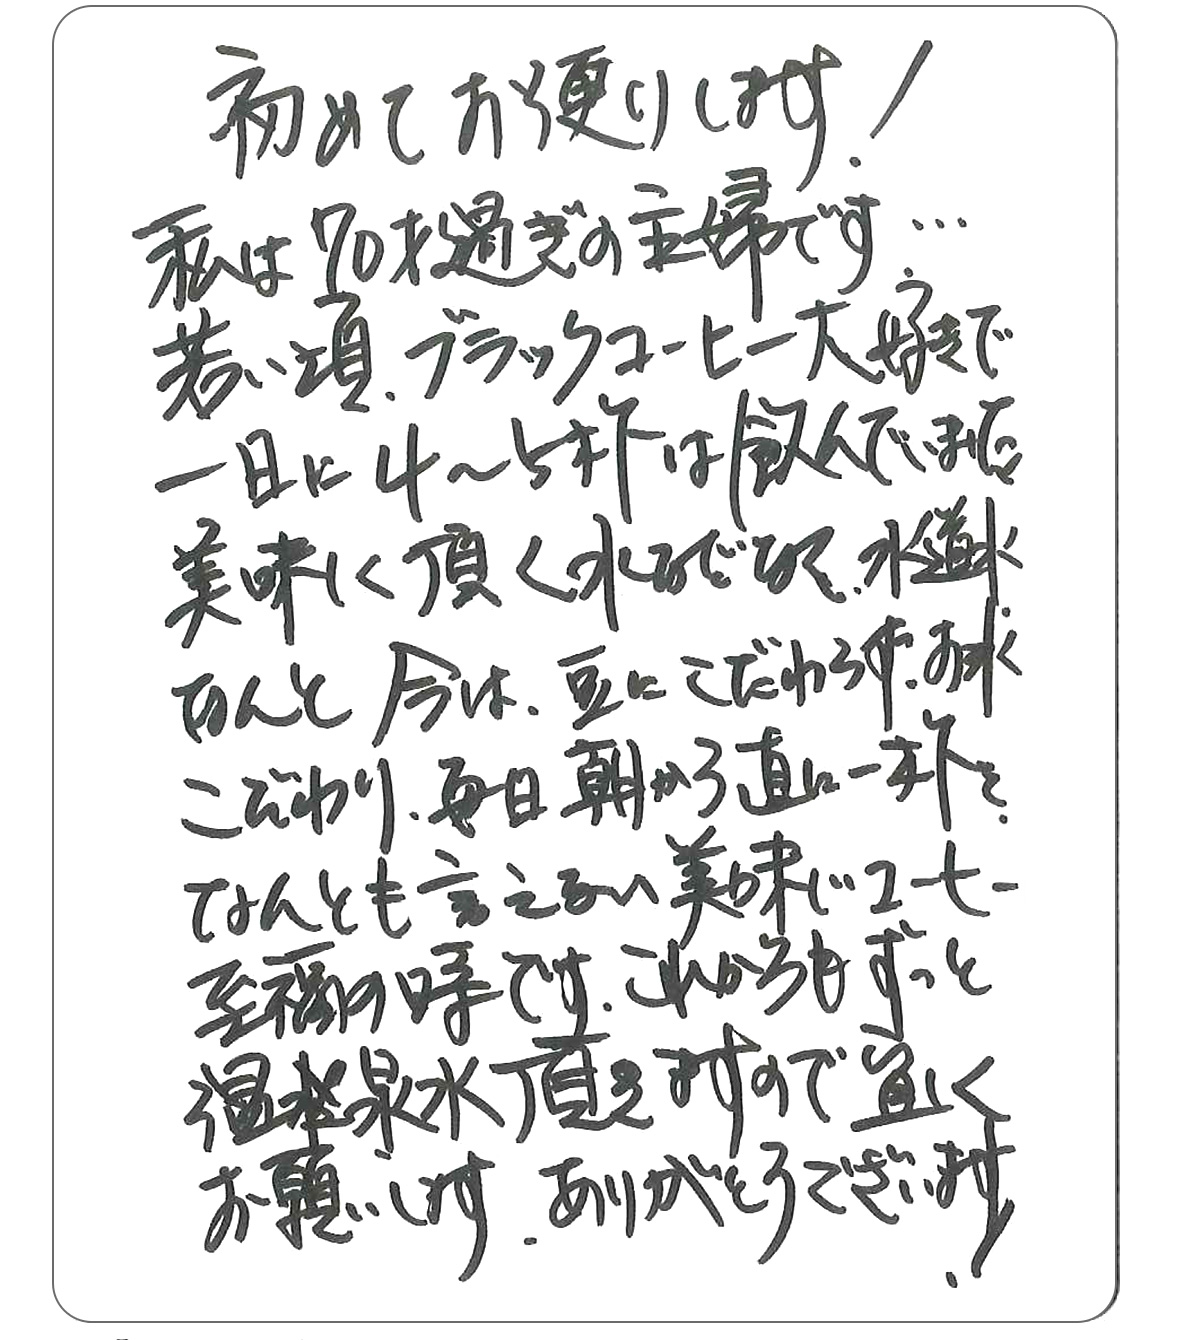 初めてお便りします!
私は70才過ぎの主婦です…
若い頃、ブラックコーヒー大好きで
一日に4〜5杯は飲んでいました
美味しく頂く水などなく、水道水
なんと今は、豆にこだわらず、お水に
こだわり、毎日朝から直に一杯を、
なんとも言えない美味しコーヒー
至福の時です。これからもずっと
温泉水頂きますので宜しく
お願いします。ありがとうございます!